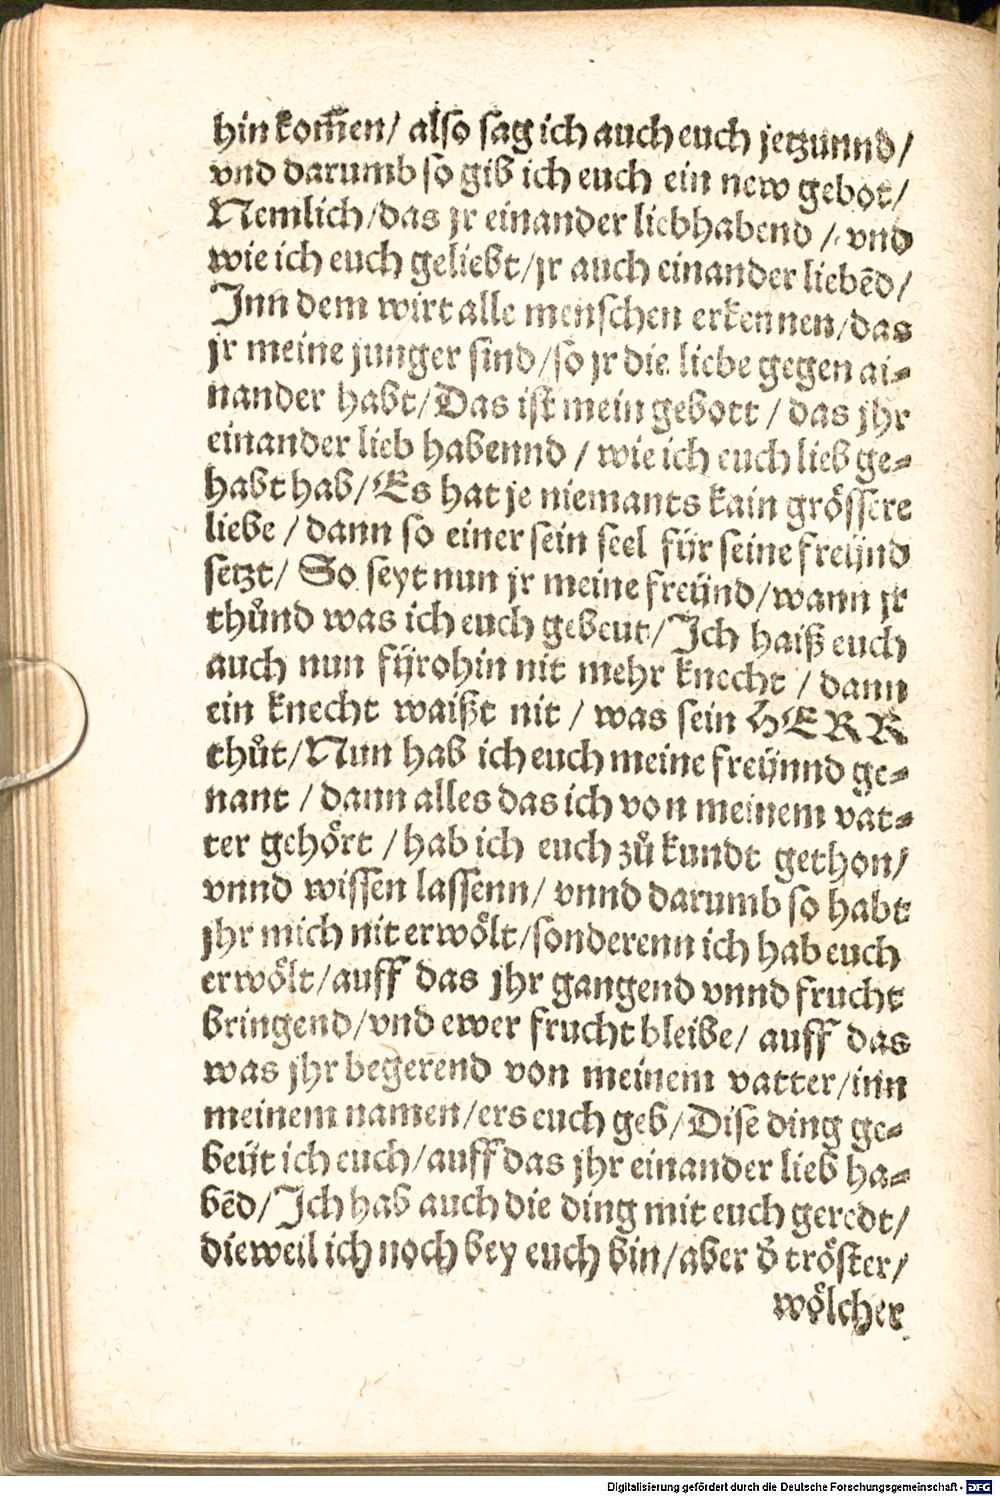 hin kom̃en/ also sag ich auch euch jetzunnd/
vnd darumb so gib ich euch ein new gebot/
Nemlich/das jr einander liebhabend / vnd
wie ich euch geliebt/jr auch einander liebẽd/
Inn dem wirt alle menschen erkennen/das
jr meine junger sind/so jr die liebe gegen ai⸗
nander habt/Das ist mein gebott / das jhr
einander lieb habennd / wie ich euch lieb ge⸗
habt hab/Es hat je niemants kain grössere
liebe / dann so einer sein seel für seine freünd
setzt/ So seyt nun jr meine freünd/wann jr
thůnd was ich euch gebeut/Ich haiß euch
auch nun fürohin nit mehr knecht / dann
ein knecht waißt nit / was sein HERR
thůt/Nun hab ich euch meine freünnd ge⸗
nant / dann alles das ich von meinem vat⸗
ter gehört / hab ich euch zů kundt gethon/
vnnd wissen lassenn/ vnnd darumb so habt
jhr mich nit erwölt/sonderenn ich hab euch
erwölt/auff das jhr gangend vnnd frucht
bringend/vnd ewer frucht bleibe/ auff das
was jhr begerend von meinem vatter/inn
meinem namen/ers euch geb/Dise ding ge⸗
beüt ich euch/auff das jhr einander lieb ha⸗
bẽd/Ich hab auch die ding mit euch geredt/
dieweil ich noch bey euch bin/aber d̕ tröster/
wölcher
Digitalisierung gefördert durch die Deutsche Forschungsgemeinschaft - DFG